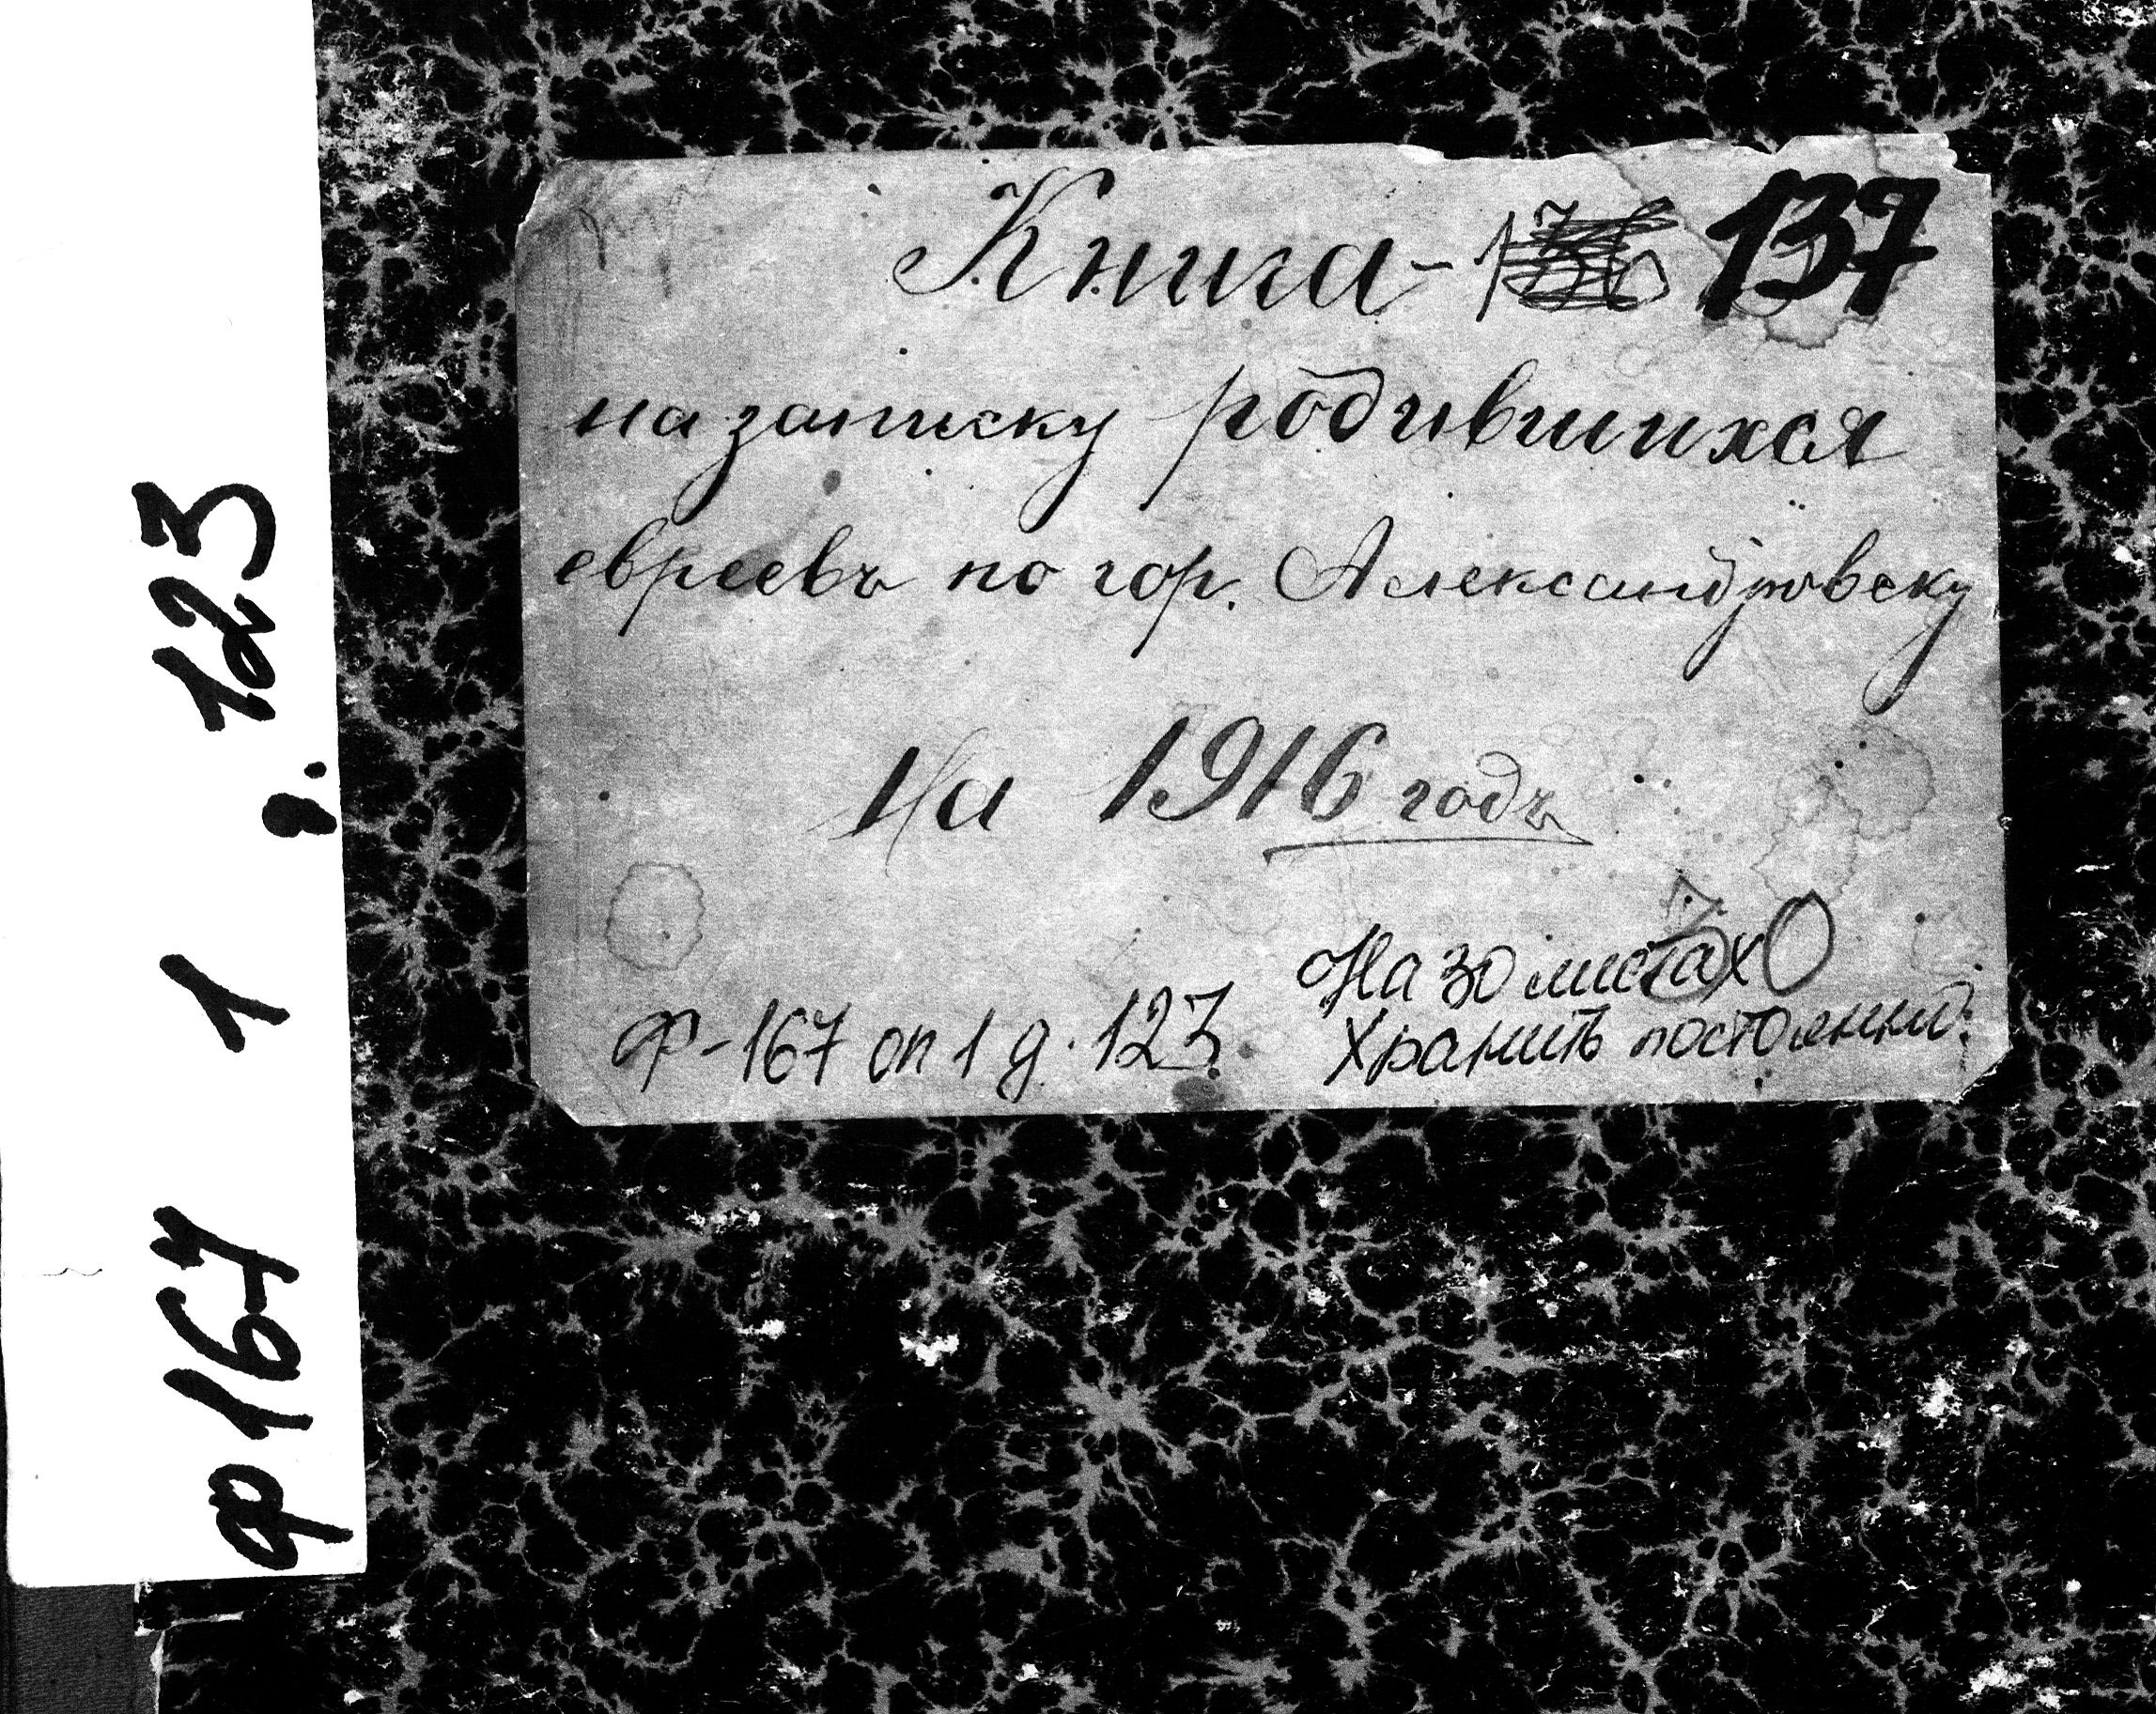 Книга - 137
на записку родившихся
евреевъ по гор. Александровску
На 1916 годъ
На 30 листах
Хранить постоянно.
Ф-167 оп 1 д. 123
ф 167 1 д. 123